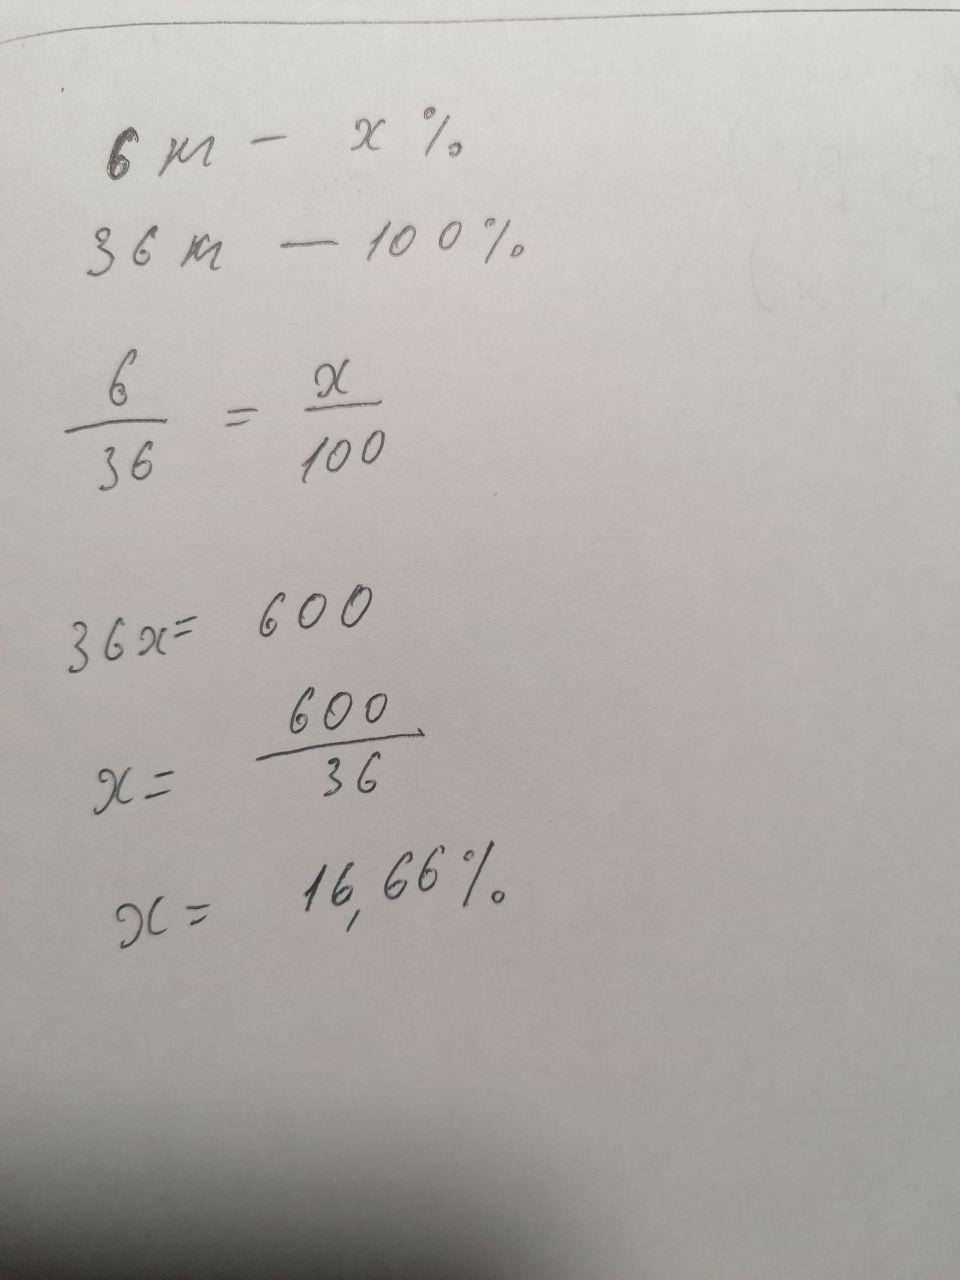 6 кг - x %
36 кг - 100%
6/36 = x/100
36x = 600
x = 600/36
x = 16,66%